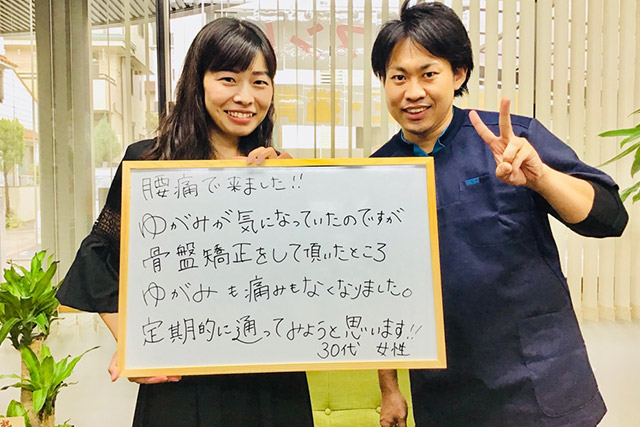 腰痛で来ました!!
ゆがみが気になっていたのですが
骨盤矯正をして頂いたところ
ゆがみも痛みもなくなりました。
定期的に通ってみようと思います!!
30代 女性
祝